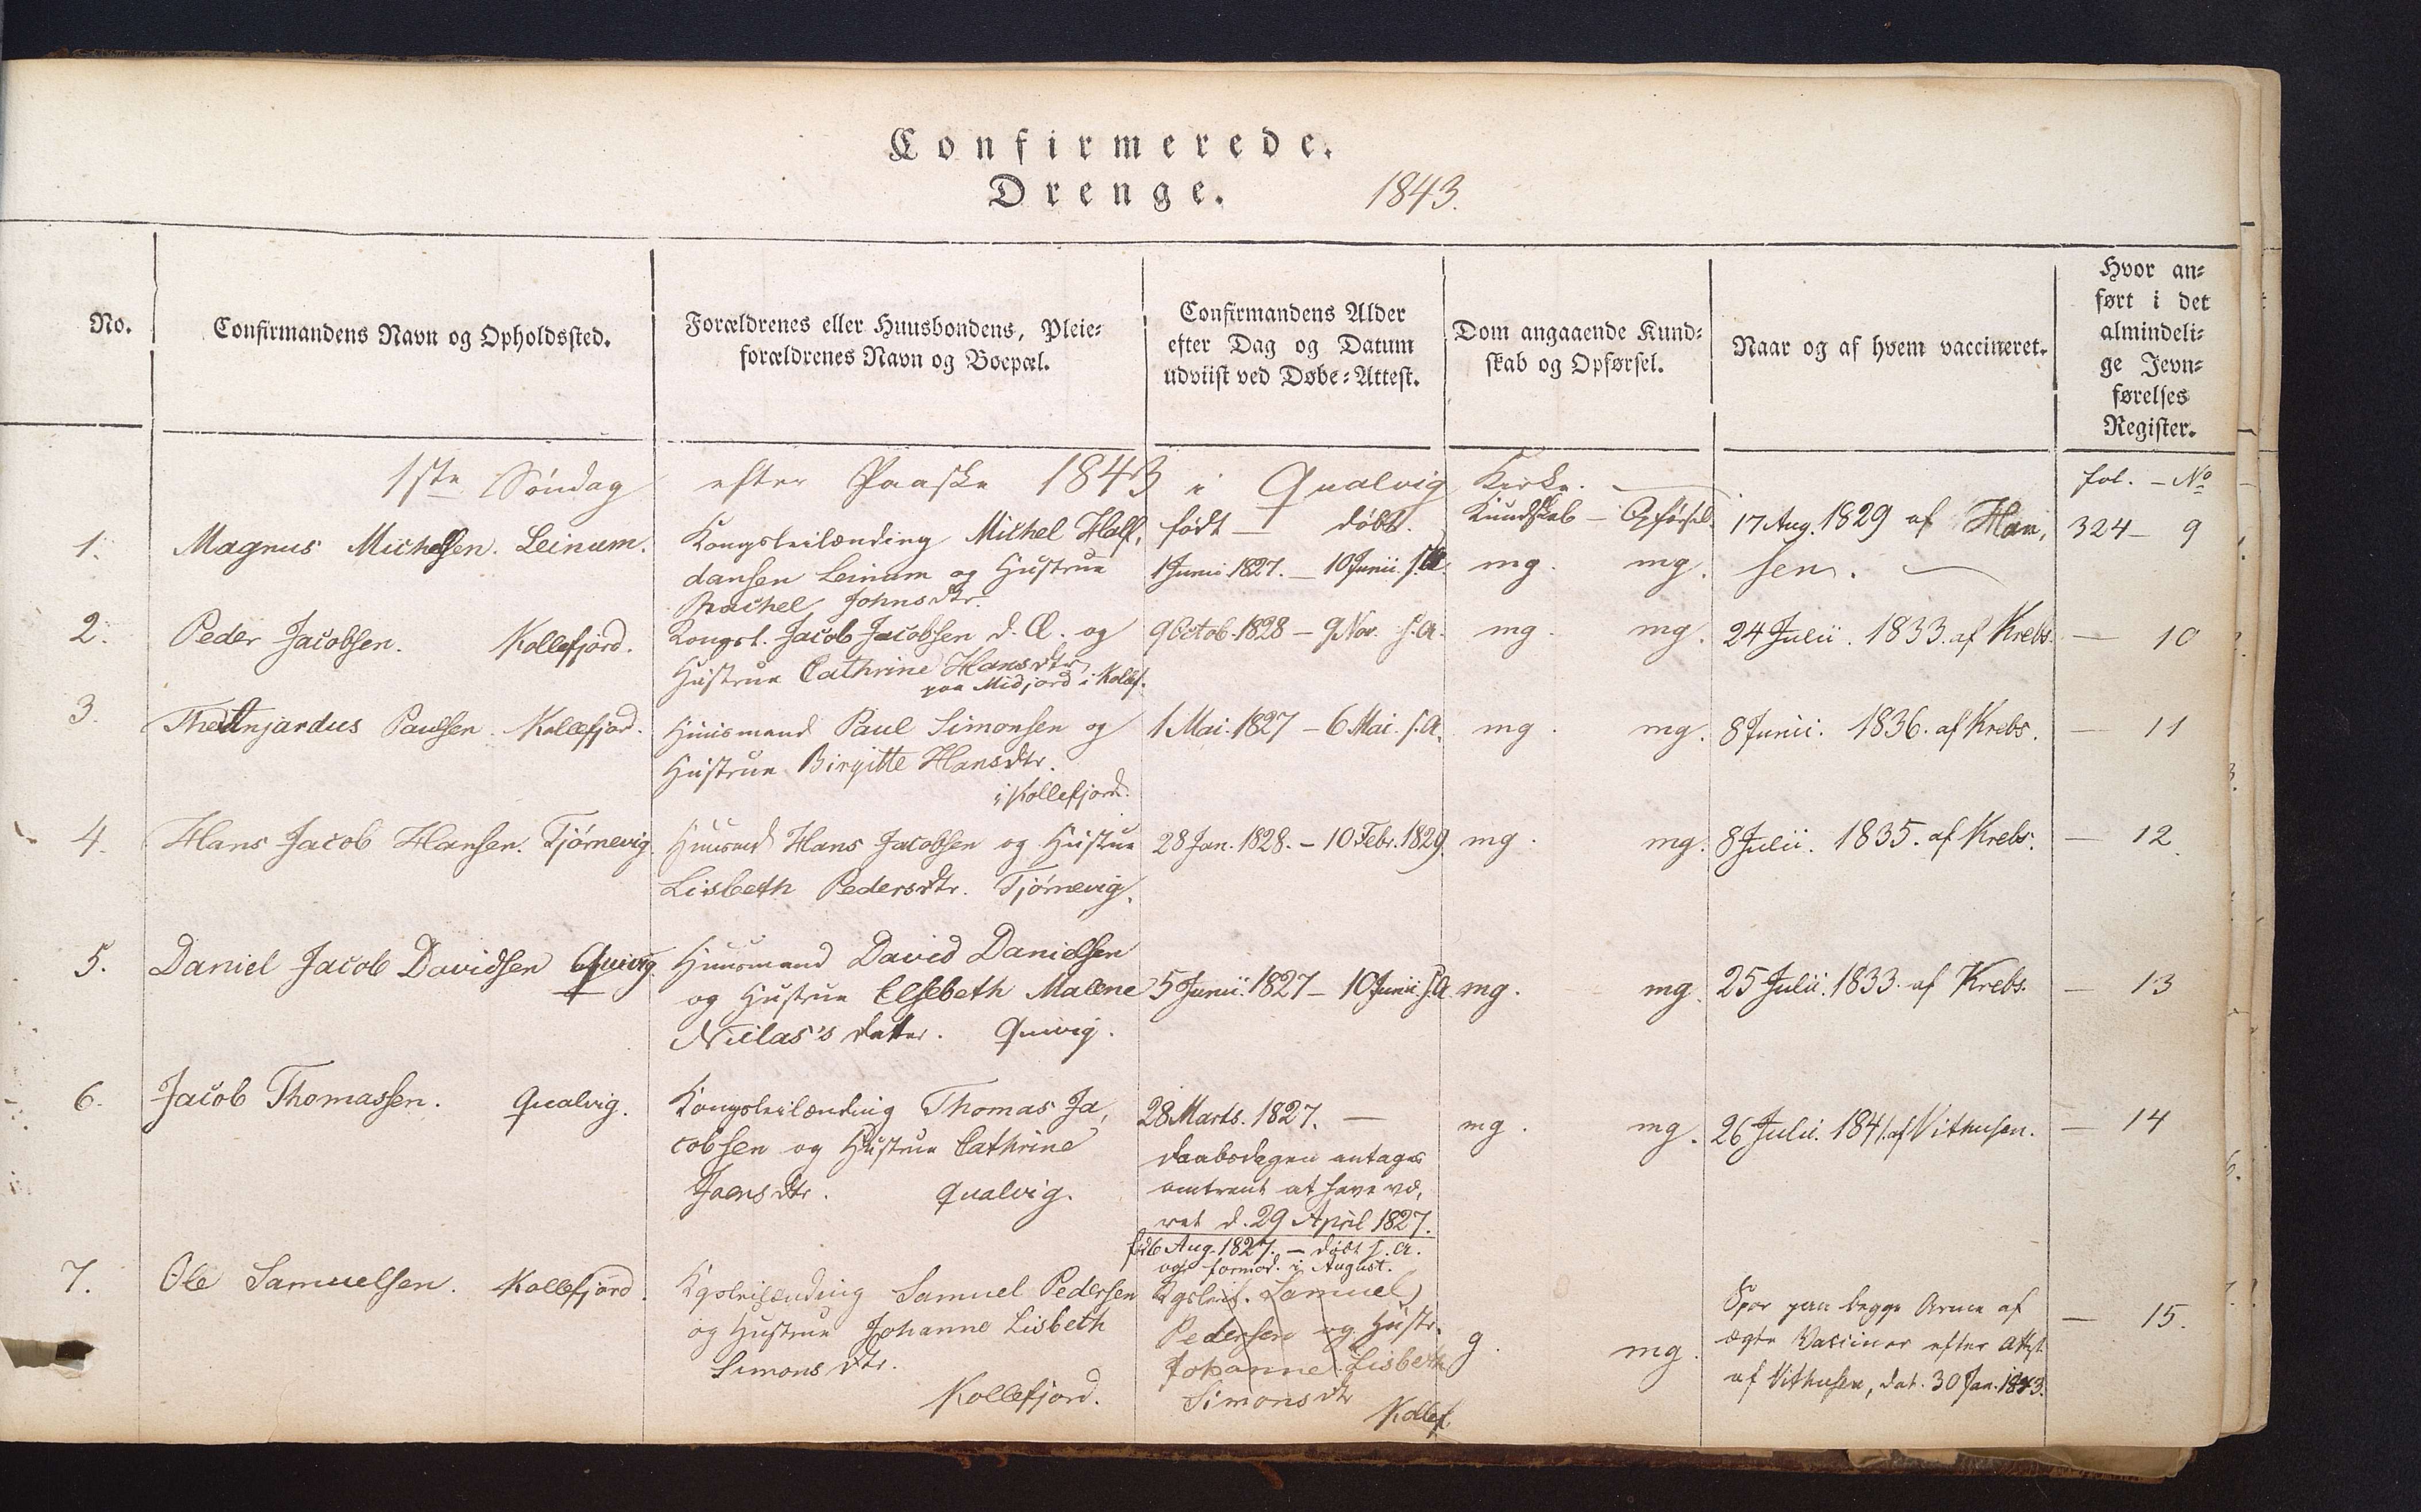 Confirmerede.
Drenge. 1843.
No.
Confirmandens Navn og Opholdssted.
Forældrenes eller Huusbondens, Pleie-
forældrenes Navn og Boepæl.
Confirmandens Alder
efter Dag og Datum
udviist ved Døbe-Attest.
Dom angaaende Kund-
skab og Opførsel.
Naar og af hvem vaccineret.
Hvor an-
ført i det
almindeli-
ge Jevn-
førelses
Register.
1ste Søndag efter Paaske 1843 i Qualvig Kirke.
født — døbt.
Kundskab — Opførsel.
fol. — No
1. Magnus Michelsen. Leinum.
Kongsleilænding Michel Half,
dansen Leinum og Hustrue
Rachel Johnsdtr.
1 Junii 1827. — 10 Junii s.A.
mg. mg.
17 Aug. 1829 af Han,
sen.
324 — 9
2. Peder Jacobsen. Kollefjord.
Kongsl. Jacob Jacobsen d. Æ. og
Hustrue Cathrine Hansdtr
paa Midjord i Kollef.
9 Octob. 1828 — 9 Nov. s.A.
mg. mg.
24 Julii. 1833. af Krebs.
— 10
3. Paulsen. Kollefjord.
Huusmand Paul Simonsen og
Hustrue Birgitte Hansdtr.
i Kollefjord.
1 Mai. 1827 — 6 Mai. s.A.
mg. mg.
8 Junii. 1836. af Krebs.
— 11
4. Hans Jacob Hansen. Tjørnevig.
Huusmd Hans Jacobsen og Hustrue
Lisbeth Pedersdtr. Tjørnevig.
28 Jan. 1828. — 10 Febr. 1829.
mg. mg.
8 Julii. 1835. af Krebs.
— 12.
5. Daniel Jacob Davidsen Quivig.
Huusmand David Danielsen
og Hustrue Elsebeth Malene
Niclas's datter. Quivig.
5 Junii. 1827 — 10 Junii. s.A.
mg. mg.
25 Julii. 1833. af Krebs.
— 13
6. Jacob Thomassen. Qualvig.
Kongsleilænding Thomas Ja,
cobsen og Hustrue Cathrine
Joensdtr. Qualvig.
28 Marts. 1827. —
daabsdagen antages
omtrent at have væ,
ret d. 29 April 1827.
mg. mg.
26 Julii. 1841. af Vithusen.
— 14
7. Ole Samuelsen. Kollefjord.
Kgsleilænding Samuel Pedersen
og Hustrue Johanne Lisbeth
Simonsdtr.
Kollefjord.
fød 6 Aug. 1827. — døbt s.A.
formod. i August.
Kgsleil. Samuel
Pedersen og Hustr.
Johanne Lisbeth
Simonsdtr
Kollef.
g. mg.
Spor paa begge Arme af
ægte Vacciner efter Attest
af Vithusen, dat. 30 Jan. 1843.
— 15.